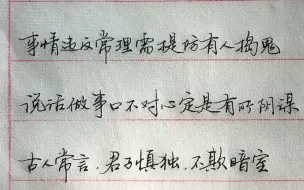 事情违反常理需提防有人捣鬼
说话做事口不对心定是有所阴谋
古人常言，君子慎独，不欺暗室